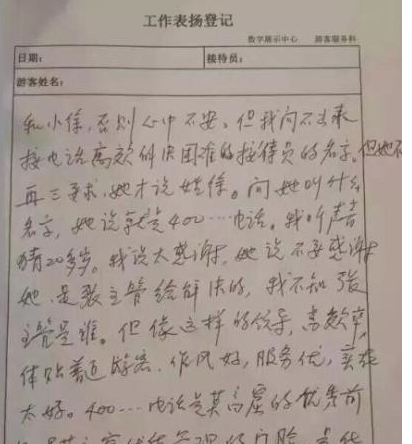 工作表扬登记
数字展示中心 游客服务科
日期： 接待员：
游客姓名：
和小徐，否则心中不安，但我问不出来
接电话高效解决困难的接待员的名字。但她不
再三要求，她才说姓徐。问她叫什么
名字，她说就是400……电话。我听声音
猜20多岁。我说太感谢，她说不要感谢
她，是张主管给解决的，我不知张
主管是谁。但像这样的领导，高效率，
体贴普通游客，作风好，服务优，实在
太好。400……电话是莫高窟的优秀前